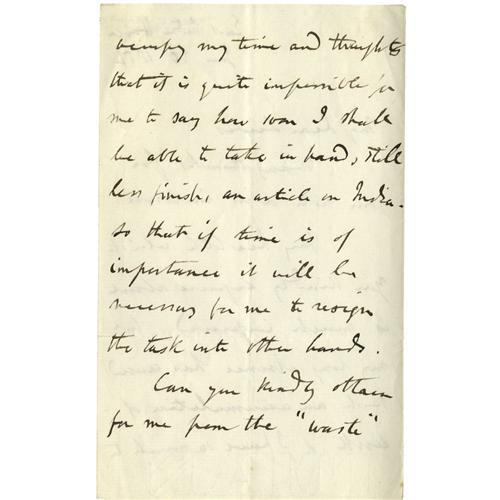 occupy my time and thoughts
that it is quite impossible for
me to say how soon I shall
be able to take in hand, still
less finish, an article on India -
so that if time is of
importance it will be
necessary for me to resign
the task into other hands.
Can you kindly obtain
for me from the "waste"